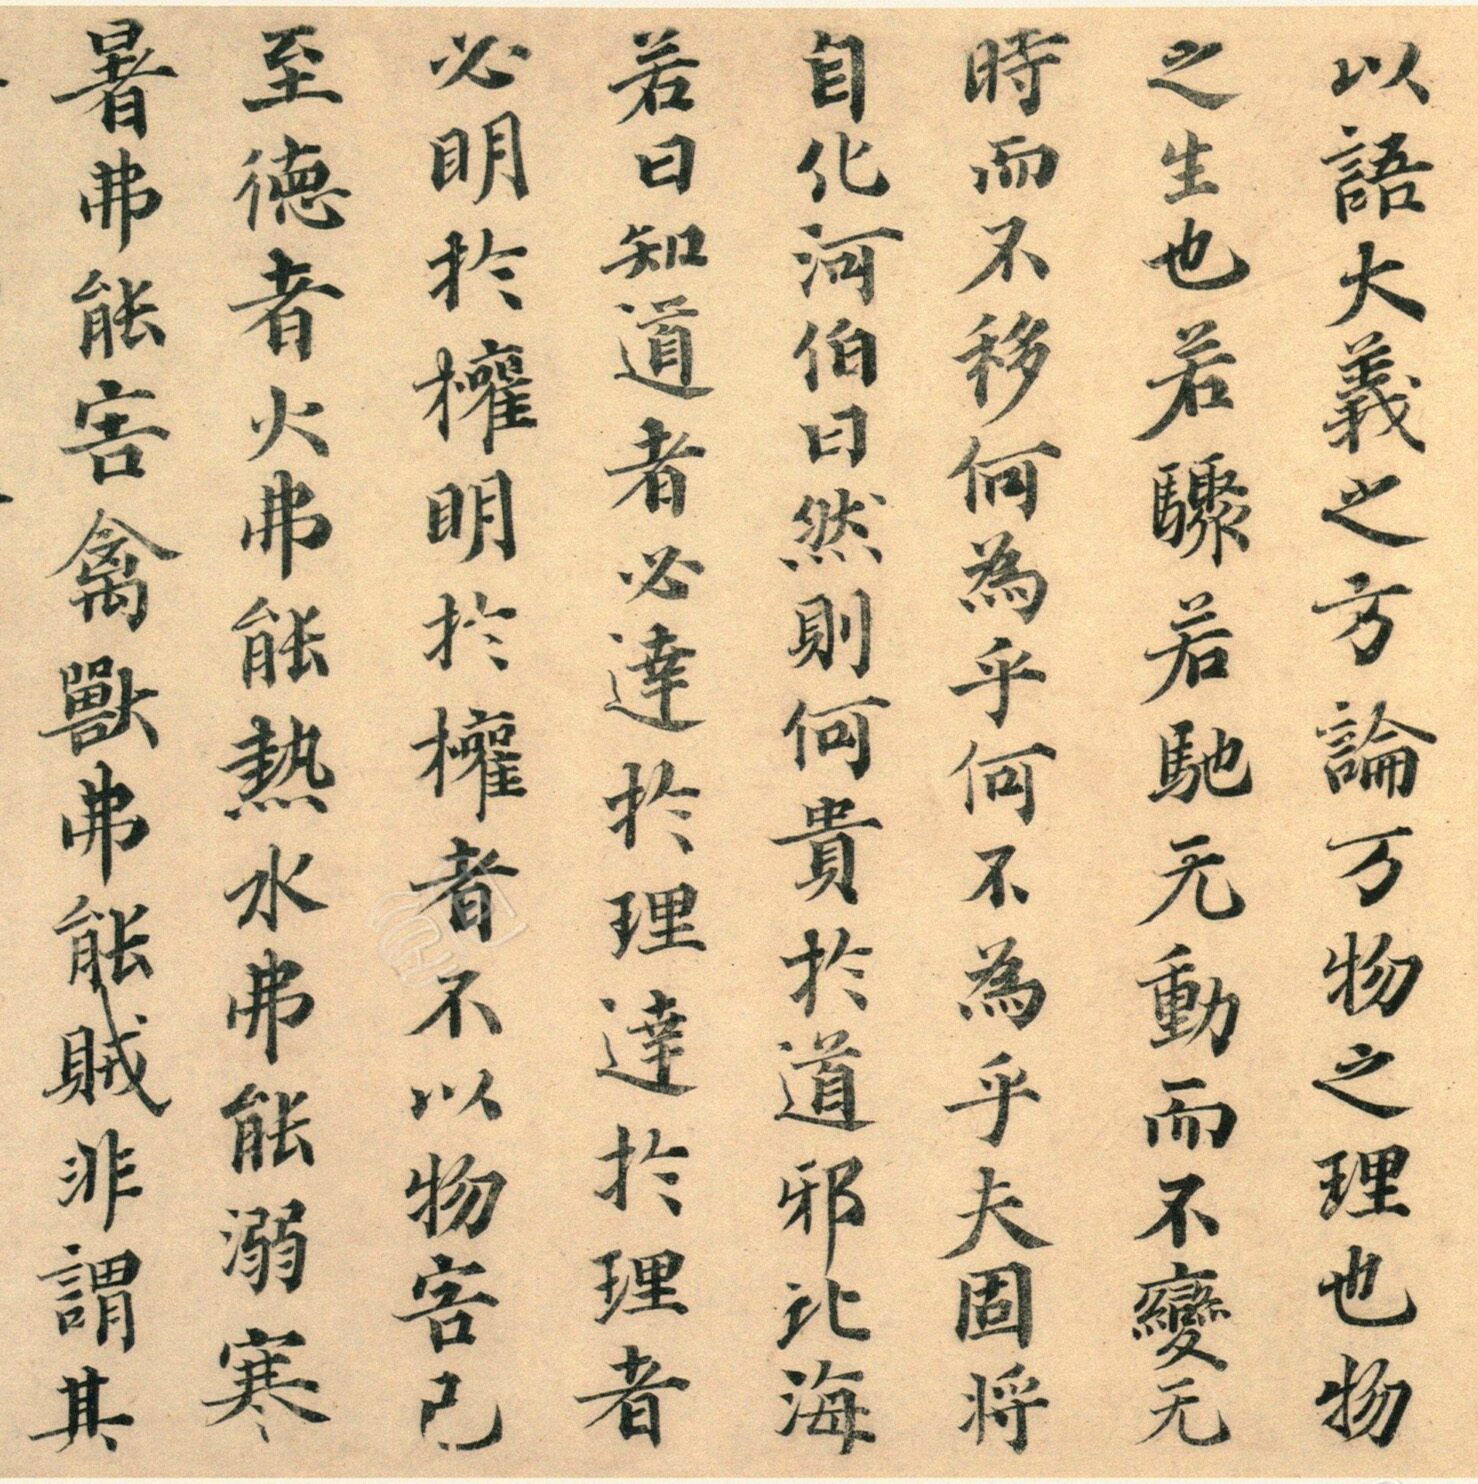 以語大義之方論万物之理也物
之生也若驟若馳无動而不變无
時而不移何為乎何不為乎夫固將
自化河伯曰然則何貴於道邪北海
若曰知道者必達於理達於理者
必明於權明於權者不以物害己
至德者火弗能熱水弗能溺寒
暑弗能害禽獸弗能賊非謂其